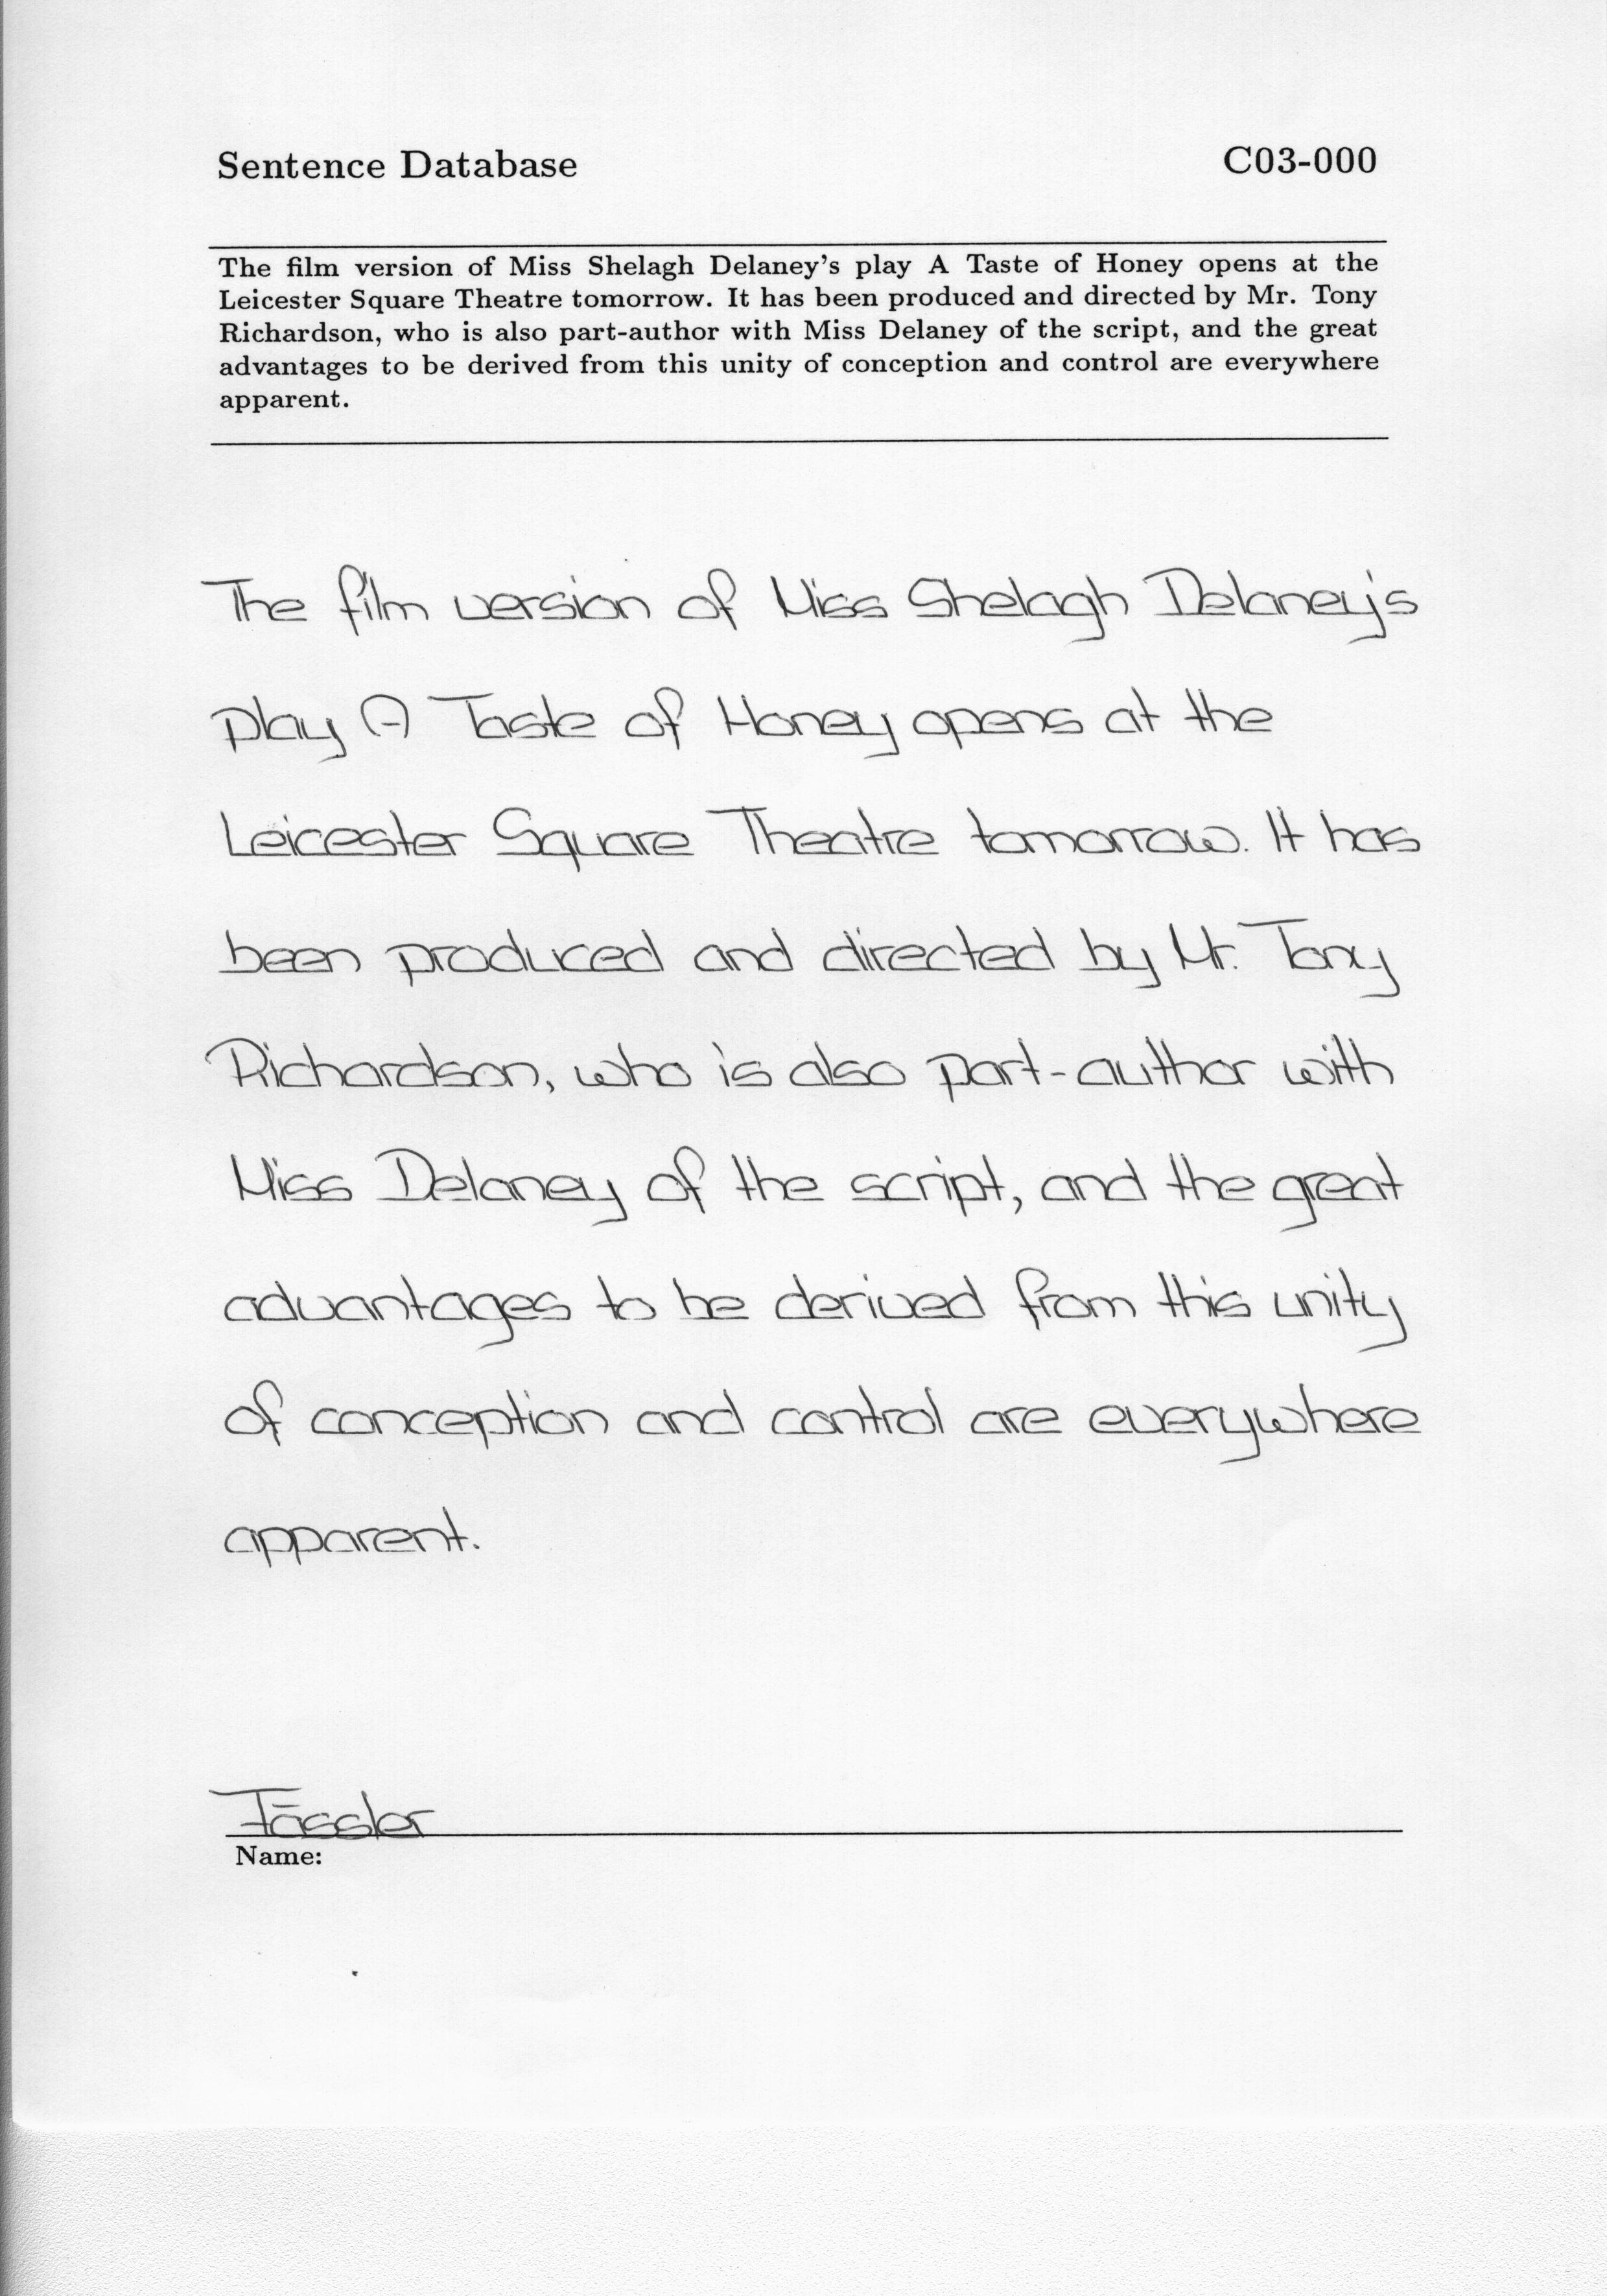 Sentence Database C03-000
The film version of Miss Shelagh Delaney's play A Taste of Honey opens at the
Leicester Square Theatre tomorrow. It has been produced and directed by Mr. Tony
Richardson, who is also part-author with Miss Delaney of the script, and the great
advantages to be derived from this unity of conception and control are everywhere
apparent.
The film version of Miss Shelagh Delaney's
play A Taste of Honey opens at the
Leicester Square Theatre tomorrow. It has
been produced and directed by Mr. Tony
Richardson, who is also part-author with
Miss Delaney of the script, and the great
advantages to be derived from this unity
of conception and control are everywhere
apparent.
Fässler
Name: